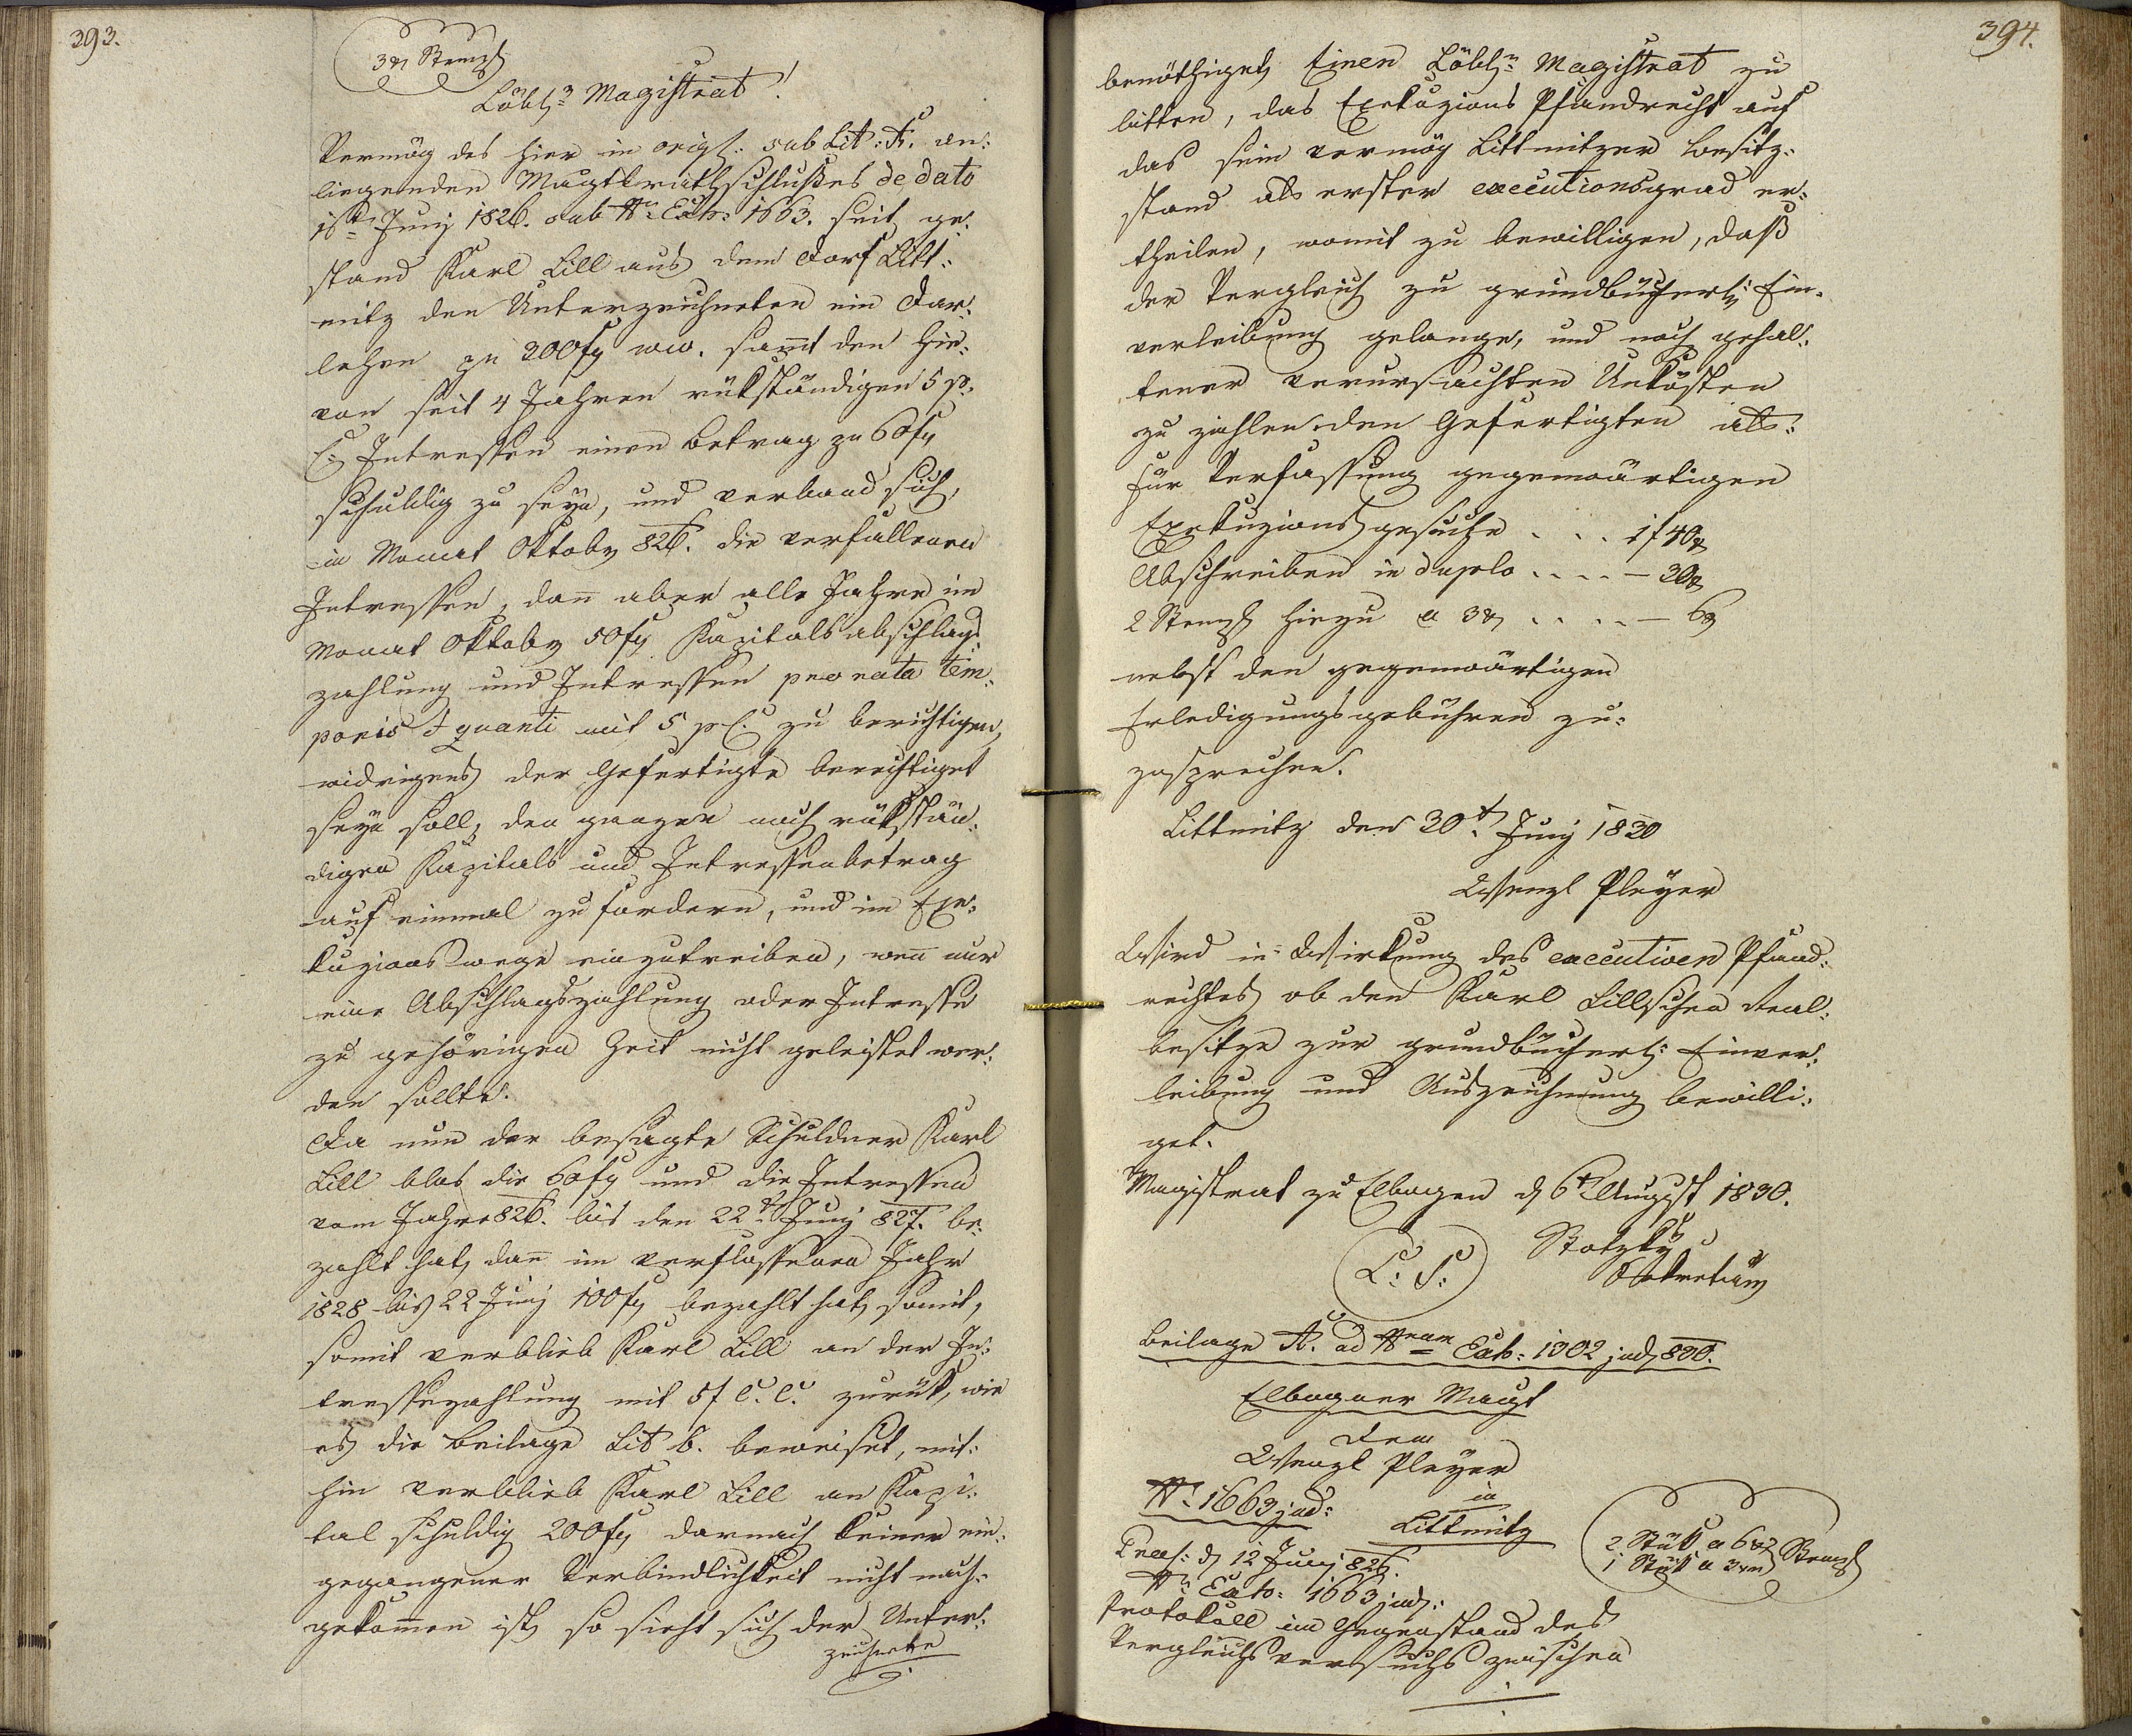 393.
3 xr Stempl
Löbl: Magistrat!
Vermög des hier in orig: sub Lit: A. an:
liegenden Magtl rathschlußes de dato
Juny 1826. sub Nr Exh: 1663. seit ge:
stand Karl Lill aus dem Dorf Litt:
mitz den Unterzeichneten ein Dar:
lehen zu 300 fl ww. samt den hie:
von seit 4 Jahren rükständigen 5 p.
C. Intressen einen Betrag zu 60 fl
schuldig zu seyn, und verband sich,
in Monat Oktober 826. die verfallenen
Intressen, dan aber alle Jahre im
Monat Oktober 50 fl Kapitals abschlags
zahlung und Intressen pro rata tem:
poris & quanti mit 5 p C. zu berichtigen,
widrigens der Gefertigte berechtiget
seyn soll, den ganzen noch rükstän:
digen Kapitals und Intressenbetrag
auf einmal zu fordern, und im Exe:
kuzionswege einzutreiben, wen nur
eine Abschlagszahlung oder Intresse
zu gehörigen Zeit nicht geleistet wer:
den sollte.
Da nun der besagte Schuldner Karl
Lill blos die 60 fl und die Intressen
vom Jahre 826. bis den 22t Juny 827. be:
zahlt hat, dan im verflossenen Jahr
1828 bis 22 Juny 100 fl bezahlt hat, somit,
somit verblieb Karl Lill an der In:
tressezahlung mit 5 f C. C. zurük, wie
es die Beilage Lit B. beweiset, mit:
hin verblieb Karl Lill an Kapi:
tal schuldig 200 fl, darnach seiner ein:
gegangener Verbindlichkeit nicht nach:
gekomen ist, so sieht sich der Unter:
zeichnete
394.
benöthiget, Einen Löbl: Magistrat zu
bitten, das Exekuzions Pfandrecht auf
das sein vermög Littmitzer Besitz:
stand als erster executionsgrad er:
theilen, womit zu bewilligen, daß
der Vergleich zu grundbücherl: Ein:
verleibung gelange, und nach gehal:
tener verursachten Unkösten
zu zahlen den Gefertigten als:
für Verfassung gegenwärtigen
Exekuzionsgesuche . . . 1 f 40 x
Abschreiben in duplo . . . . — 20 x
2 Stempl hiezu a 3 x . . . . — 6 x
nebst den gegenwärtigen
Erledigungsgebühren zu:
zusprechen.
Littmitz den 30t Juny 1830
Wenzl Pleyer
Wird in Wirkung des executiven Pfand:
rechtes ob den Karl Lillschen Real:
besitze zur grundbücherl: Einver:
leibung und Auszeichnung bewilli:
get.
Magistrat zu Elbogen d 6t August 1830.
L: S:
Sekretär
Beilage A. ad Nrum Exh: 1302 jud 830.
Elbogner Magt
dem
Wenzl Pleyer
in
Littmitz
Nr 1663 jud:
2 Stük a 6 xr
1 Stük a 3 xr Stempl
Praes: d 12 Juny 826.
Nr Exh: 1663 jud:
Protokoll im Gegenstand des
Vergleichsversuchs zwischen